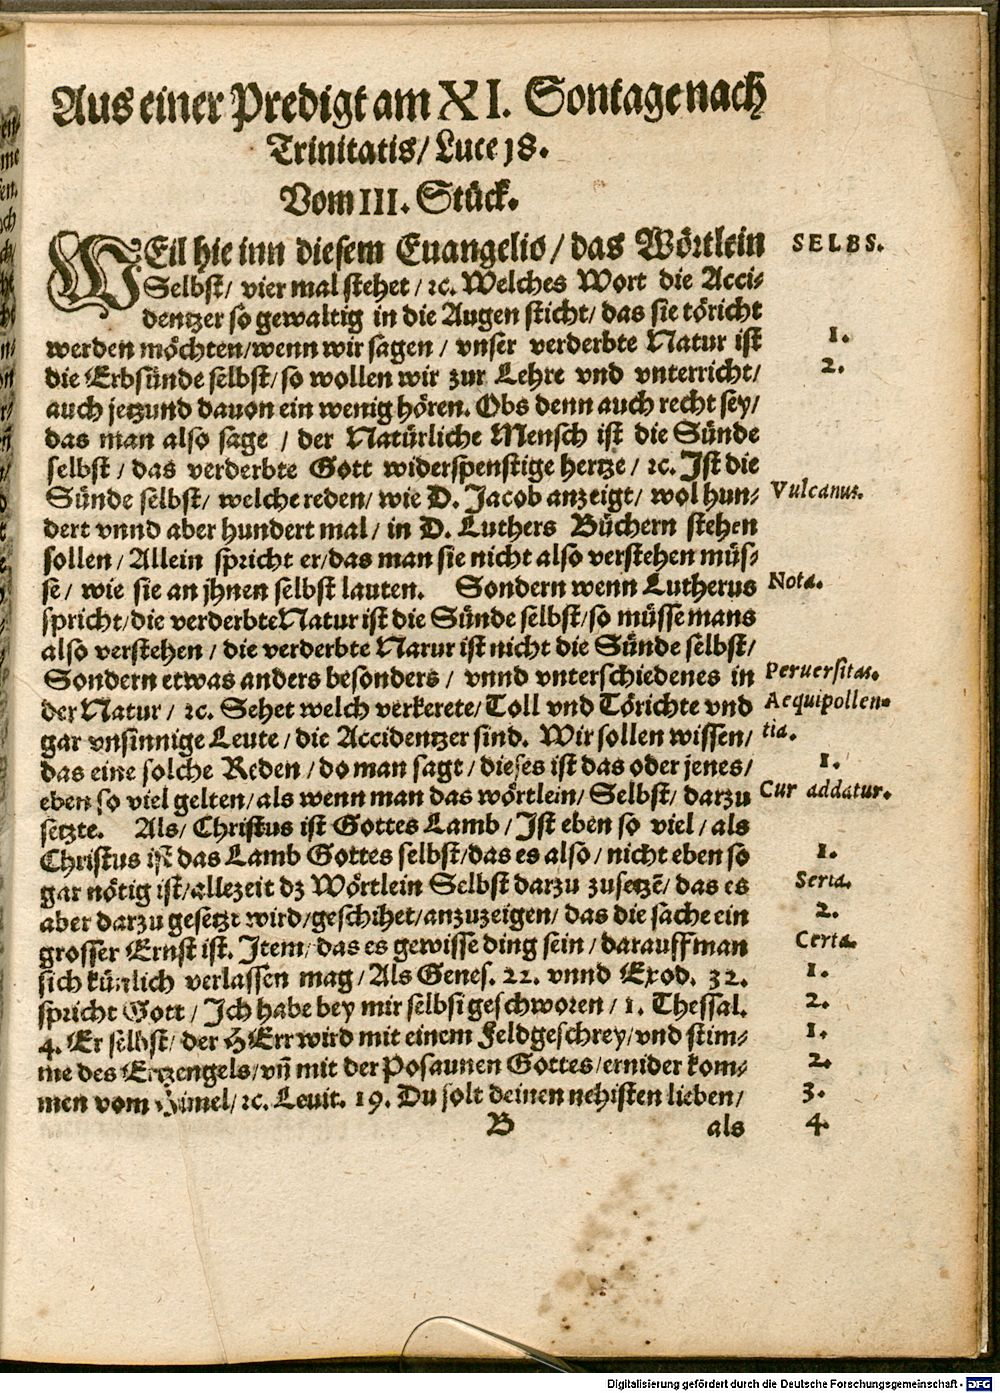 Aus einer Predigt am XI. Sontage nach
Trinitatis/ Luce 18.
Vom III. Stück.
WEil hie inn diesem Euangelio/ das Wörtlein
SELBS.
Selbst/ vier mal stehet/ ꝛc. Welches Wort die Acci-
dentzer so gewaltig in die Augen sticht/ das sie töricht
werden möchten/wenn wir sagen/ vnser verderbte Natur ist
1.
die Erbsünde selbst/ so wollen wir zur Lehre vnd vnterricht/
2.
auch jetzund dauon ein wenig hören. Obs denn auch recht sey/
das man also sage/ der Natürliche Mensch ist die Sünde
selbst/ das verderbte Gott widerspenstige hertze/ ꝛc. Ist die
Sünde selbst/ welche reden/ wie D. Jacob anzeigt/ wol hun-
Vulcanus.
dert vnnd aber hundert mal/ in D. Luthers Büchern stehen
sollen/ Allein spricht er/das man sie nicht also verstehen müs-
se/ wie sie an jhnen selbst lauten. Sondern wenn Lutherus
Nota.
spricht/die verderbte Natur ist die Sünde selbst/so müsse mans
also verstehen/ die verderbte Narur ist nicht die Sünde selbst/
Sondern etwas anders besonders/ vnnd vnterschiedenes in
Peruersitas.
der Natur/ ꝛc. Sehet welch verkerete/ Toll vnd Törichte vnd
Aequipollen-
gar vnsinnige Leute/ die Accidentzer sind. Wir sollen wissen/
tia.
das eine solche Reden/ do man sagt/ dieses ist das oder jenes/
1.
eben so viel gelten/ als wenn man das wörtlein/ Selbst/ darzu
Cur addatur.
setzte. Als/ Christus ist Gottes Lamb/ Ist eben so viel/ als
Christus ist das Lamb Gottes selbst/das es also/ nicht eben so
1.
gar nötig ist/allezeit dz Wörtlein Selbst darzu zusetzẽ/ das es
Seria.
aber darzu gesetzt wird/geschihet/anzuzeigen/ das die sache ein
2.
grosser Ernst ist. Item/ das es gewisse ding sein/ darauff man
Certa.
sich künlich verlassen mag/ Als Genes. 22. vnnd Exod. 32.
1.
spricht Gott/ Ich habe bey mir selbst geschworen/ 1. Thessal.
2.
4. Er selbst/ der HErr wird mit einem Feldgeschrey/vnd stim-
1.
me des Ertzengels/vñ mit der Posaunen Gottes/ernider kom-
2.
men vom Himel/ ꝛc. Leuit. 19. Du solt deinen nehisten lieben/
3.
B
als
4.
Digitalisierung gefördert durch die Deutsche Forschungsgemeinschaft - DFG